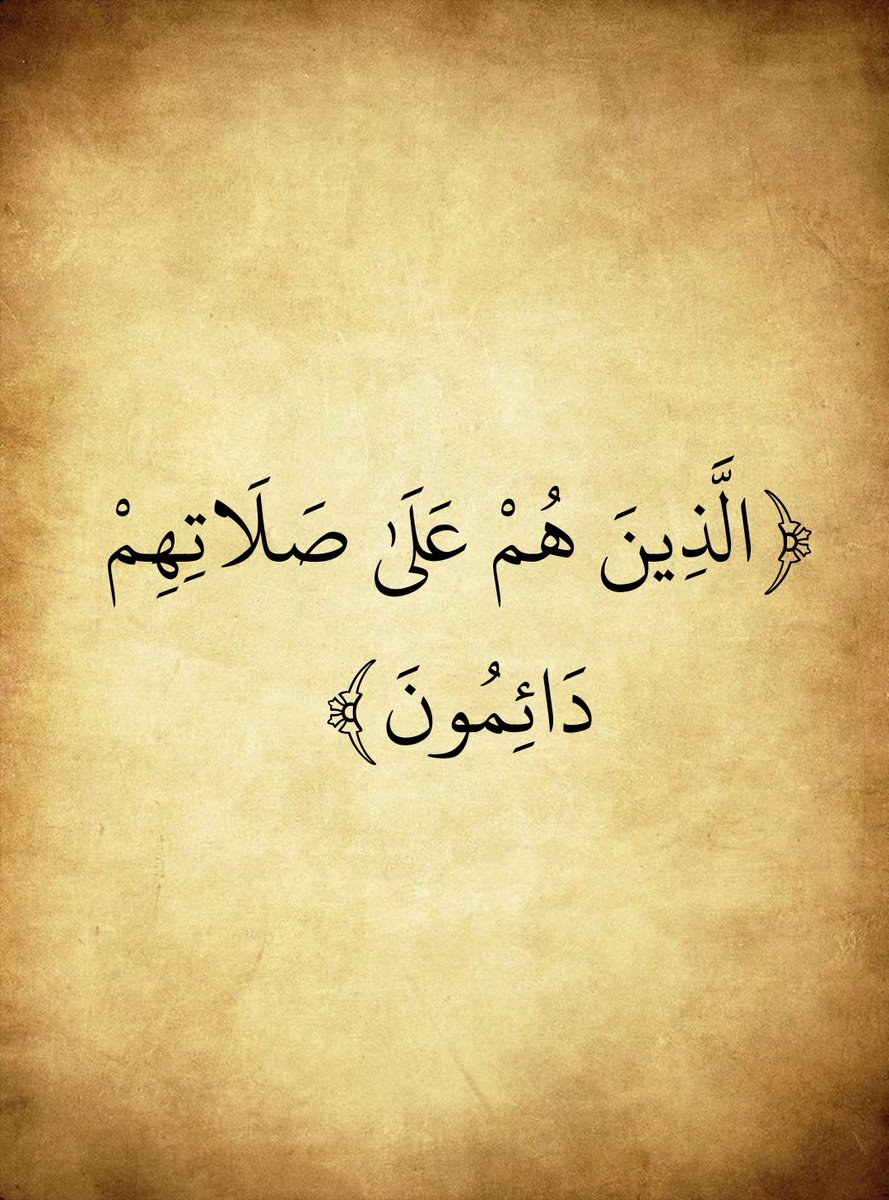 ﴿الَّذِينَ هُمْ عَلَىٰ صَلَاتِهِمْ
دَائِمُونَ﴾